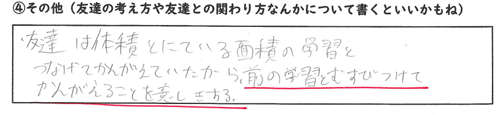 ④その他（友達の考え方や友達との関わり方なんかについて書くといいかもね）
友達は体積とにている面積の学習と
つなげてかんがえていたから、前の学習とむすびつけて
かんがえることを意しきする。